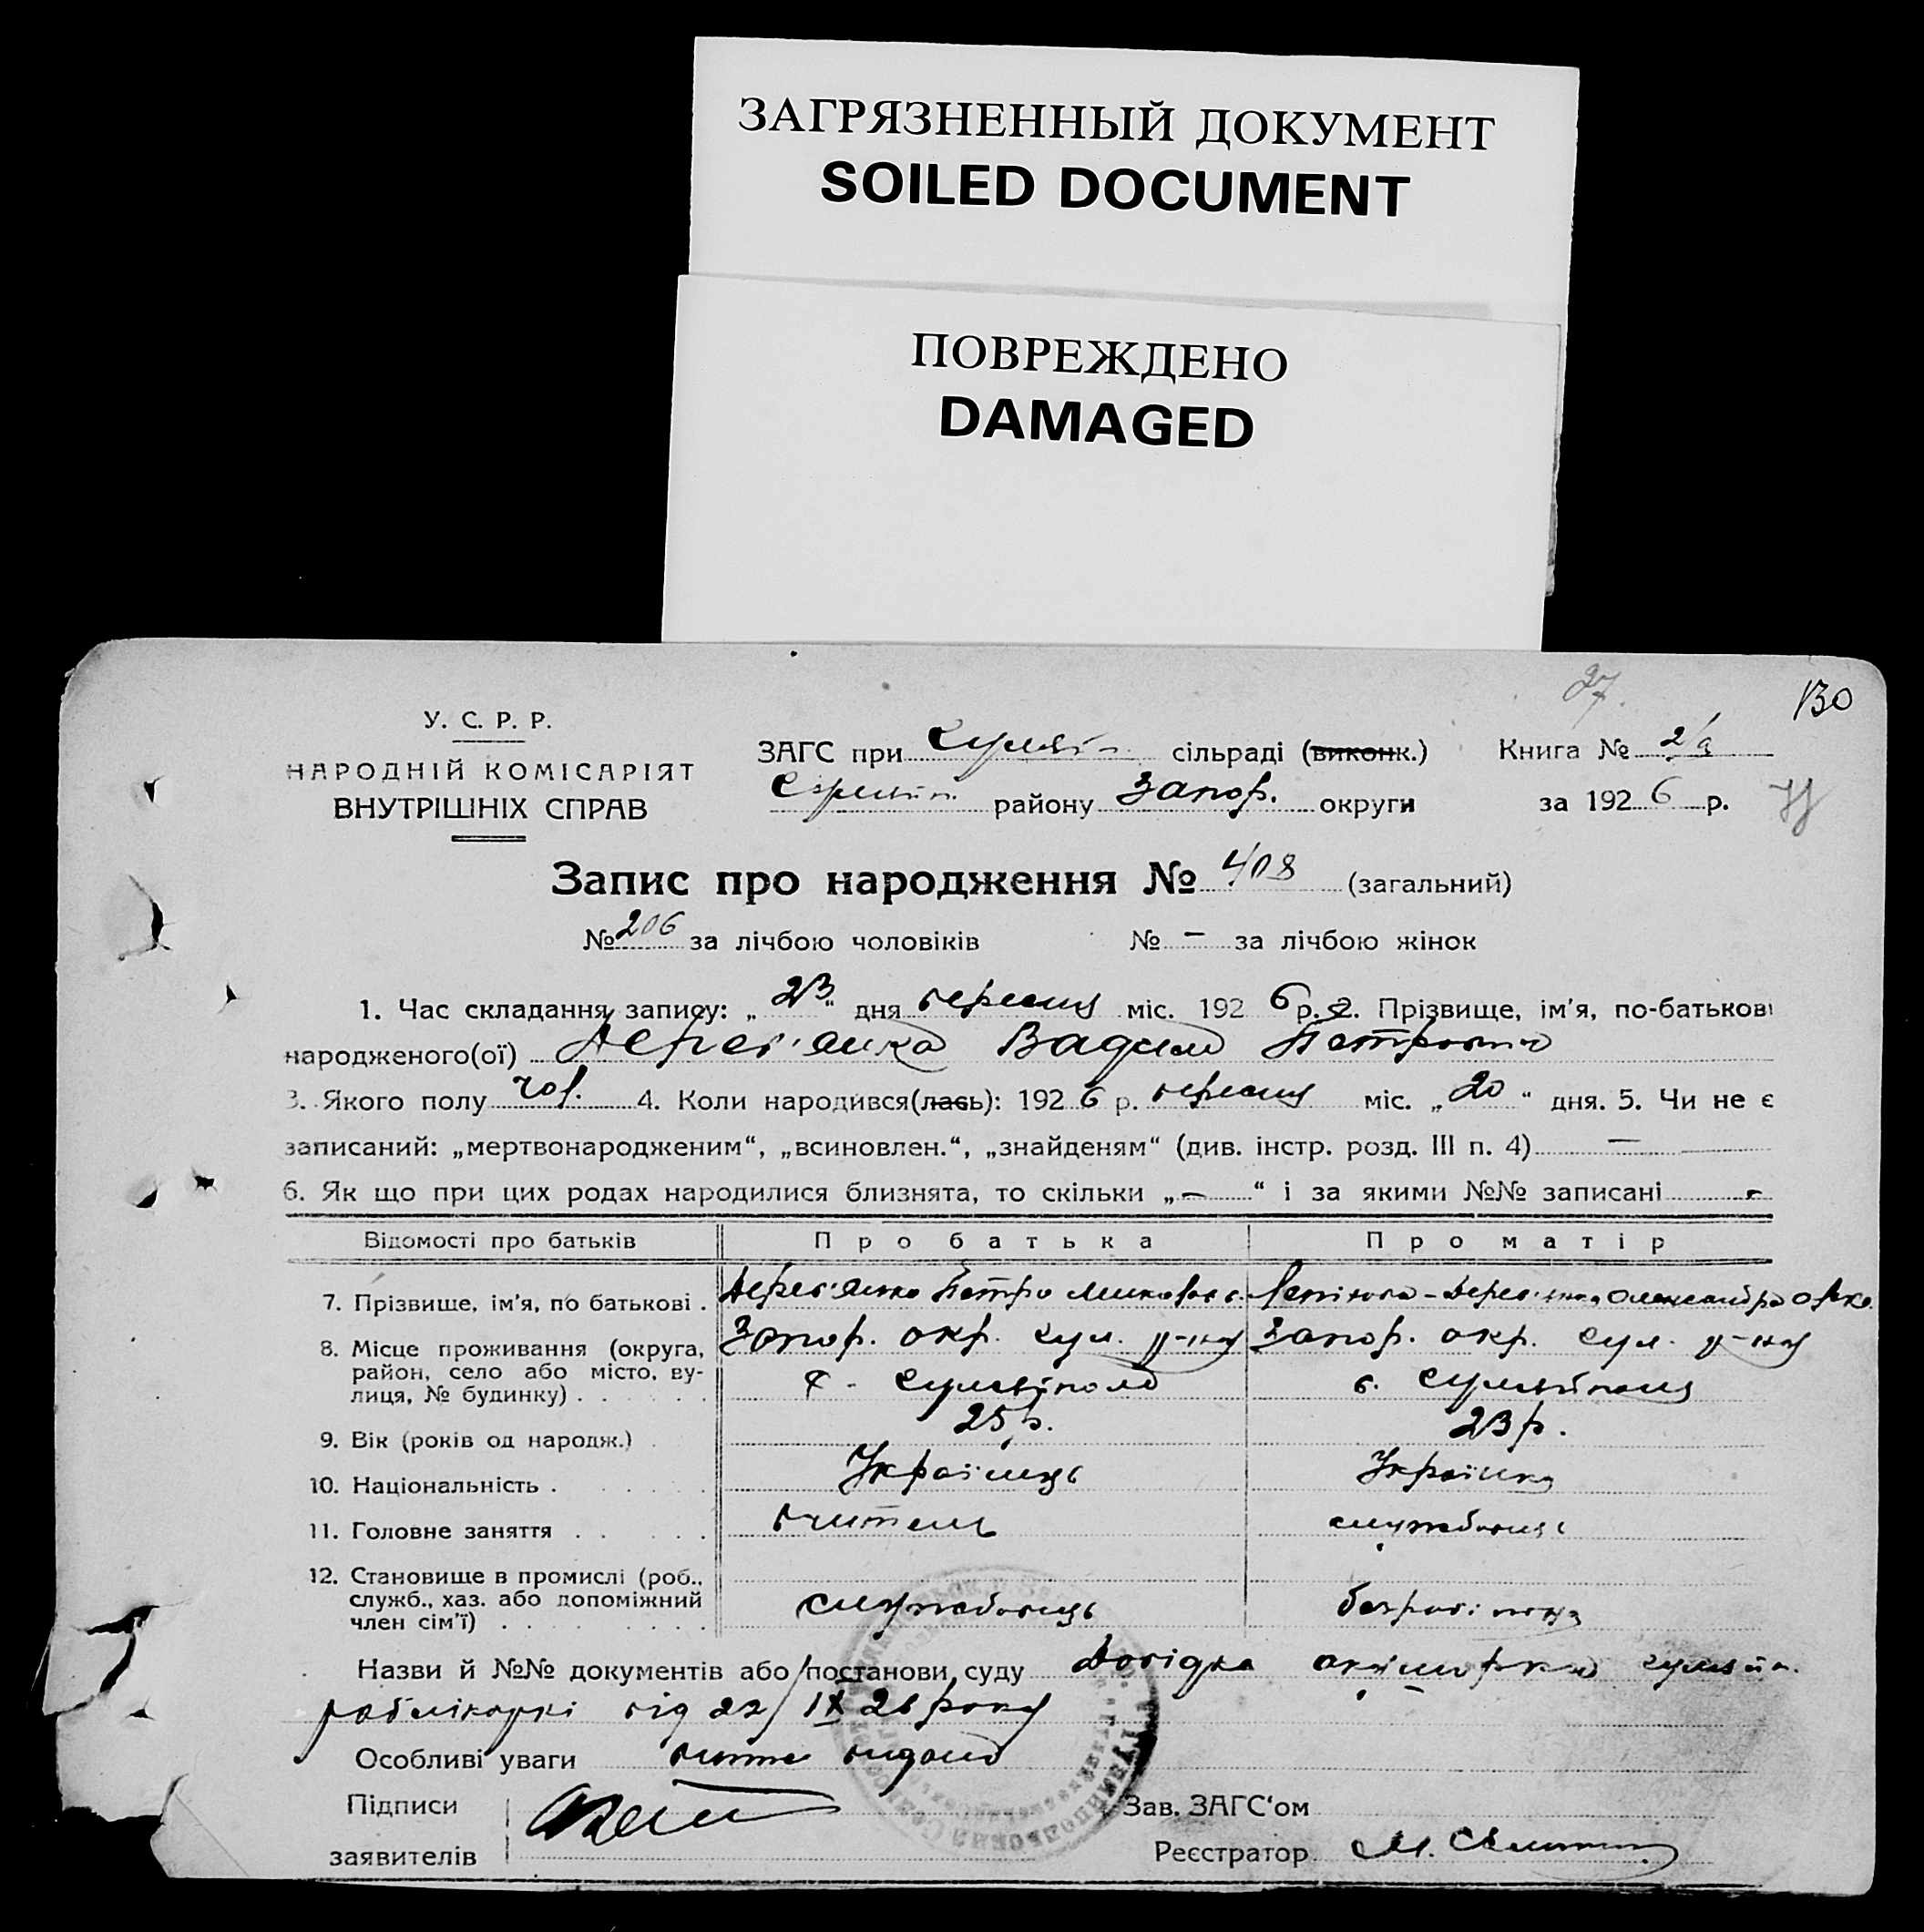 ЗАГРЯЗНЕННЫЙ ДОКУМЕНТ
SOILED DOCUMENT
ПОВРЕЖДЕНО
DAMAGED
27. 130
У. С. Р. Р.
НАРОДНІЙ КОМІСАРІЯТ
ВНУТРІШНІХ СПРАВ
ЗАГС при Гуляйп. сільраді (виконк.) Книга №
району Запор. округи за 1926 р.
Запис про народження № 408 (загальний)
№ 206 за лічбою чоловіків № — за лічбою жінок
1. Час складання запису: „23“ дня вересня міс. 1926 р. 2. Прізвище, ім'я, по-батькові
народженого(ої) Дерев'янко Вадим Петрович
3. Якого полу чол. 4. Коли народився(лась): 1926 р. вересня міс. „20“ дня. 5. Чи не є
записаний: „мертвонародженим“, „всиновлен.“, „знайденям“ (див. інстр. розд. III п. 4) —
6. Як що при цих родах народилися близнята, то скільки „—“ і за якими №№ записані -
Відомості про батьків Про батька Про матір
7. Прізвище, ім'я, по батькові . Дерев'янко Петро Миколов. Дерев'янко Олександра
8. Місце проживання (округа, район, село або місто, вулиця, № будинку) . Запор. окр. Гул. р-ну Запор. окр. Гул. р-ну
с. Гуляйполе с. Гуляйполя
9. Вік (років од народж.) . 25 р. 23 р.
10. Національність . Українець Українка
11. Головне заняття . вчитель службовець
12. Становище в промислі (роб., служб., хаз. або допоміжний член сім'ї) . службовець
Назви й №№ документів або постанови суду Довідка акушерки Гуляйп.
від 22/IX 26 року
Особливі уваги видано
Підписи
заявителів
Зав. ЗАГС'ом
Реєстратор М.